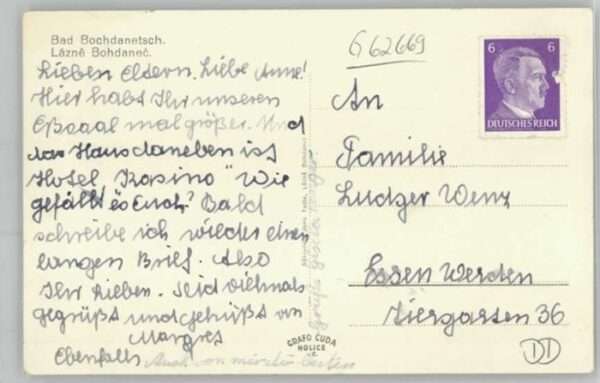 Bad Bochdanetsch.
Lázně Bohdaneč.
Lieben Eltern, Liebe Anne!
Hier habt Ihr unseren
Eßsaal mal größer. Und
das Haus daneben ist
Hotel „Kasino" Wie
gefällt es Euch? Bald
schreibe ich wieder einen
langen Brief. Also
Ihr Lieben. Seid vielmals
gegrüßt und geküßt von
Margret
Ebenfalls
Auch von
Grüße Gisela
G 62669
6 6
DEUTSCHES REICH
An
Familie
Ludger Wenz
Essen Werden
Tiergarten 36
GRAFO ČUDA
HOLICE
DI